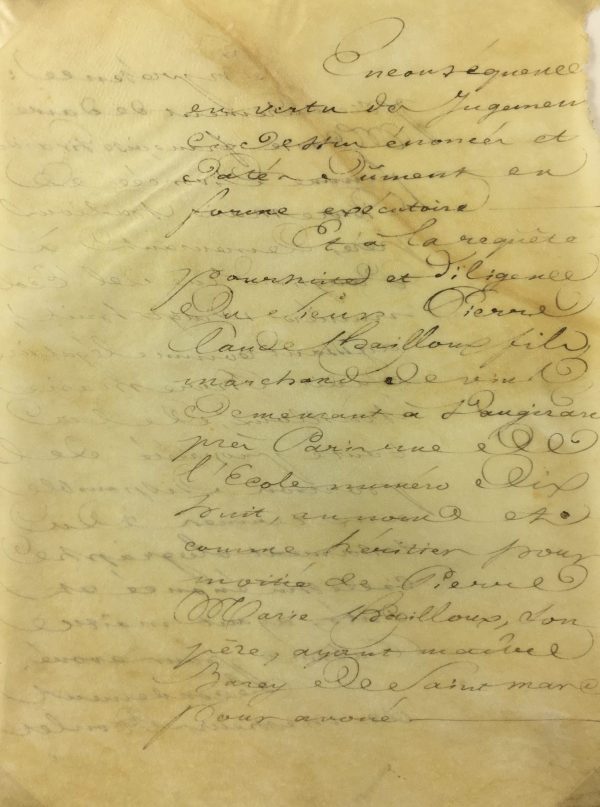 En conséquence
en vertu du Jugement
Ci-Dessus énoncé et
Daté Dûment en
forme exécutoire
Et à la requête
poursuite et Diligence
du Sieur Pierre
Claude Bailloux fils
marchand de vins
Demeurant à Vaugirard
près Paris rue de
l'École numéro Dix
huit au nom et
comme héritier pour
moitié de Pierre
Marie Bailloux, Son
père, ayant maître
de Saint marc
pour avoué